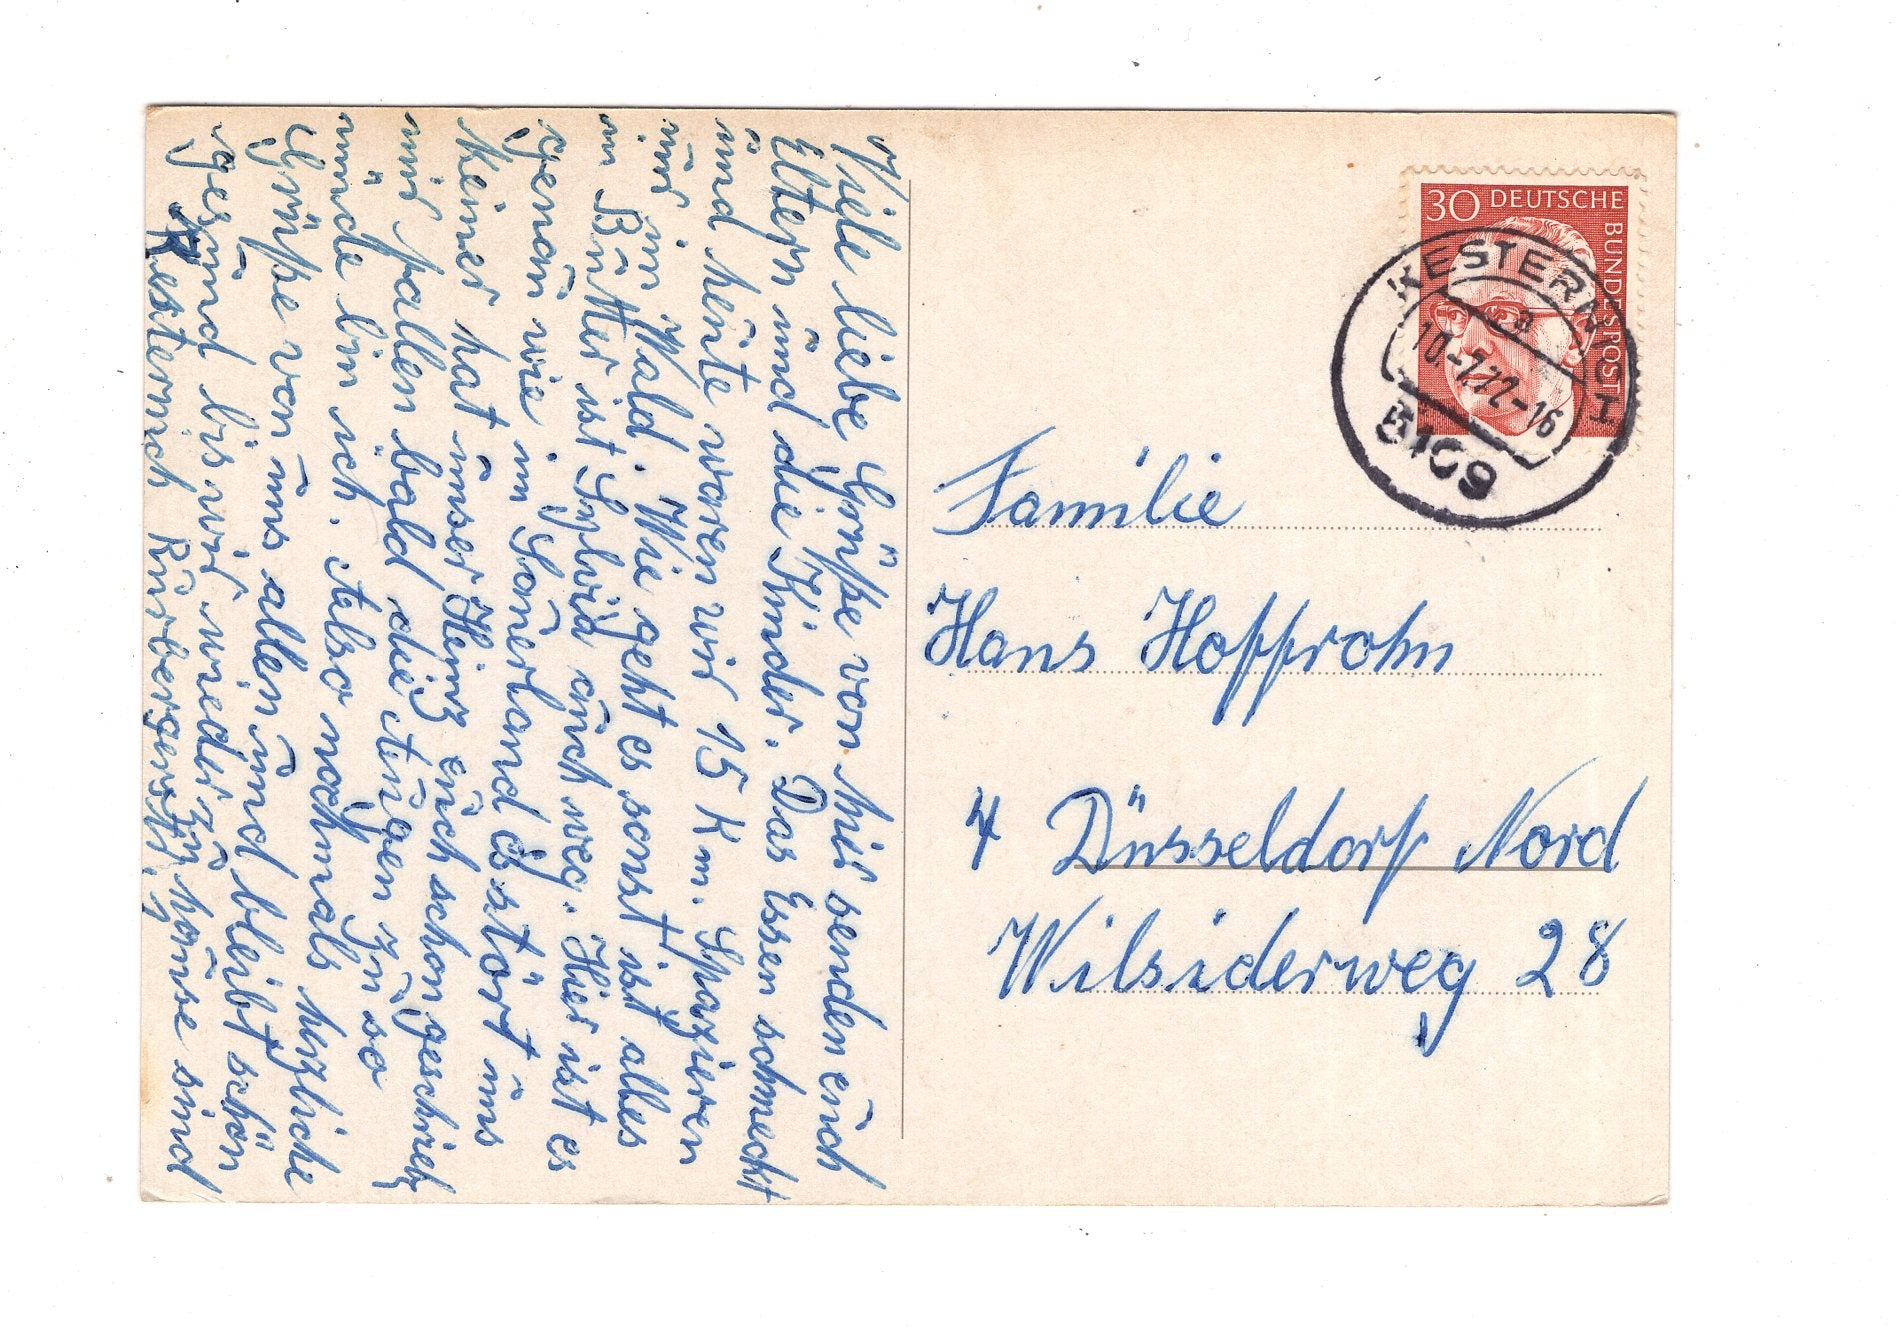 Viele liebe Grüße von Mir senden euch
Eltern und die Kinder. Das Essen schmeckt
und heute waren wir 15 Km. Spazieren
nur im Wald. Wie geht es sonst ist alles
in Butter ist Sylvia auch weg. Hier ist es
genau wie im Sauerland es stört uns
Keiner hat unser Heinz euch schon geschrieb
mir fallen bald die Augen zu so
müde bin ich. Also nochmals herzliche
Grüße von uns allen und bleibt schön
gesund bis wir wieder zu hause sind
Kesternich Rürbergerstr. 9
30 DEUTSCHE
BUNDESPOST
KESTERNICH
a
10.-7.72-16
5109
Familie
Hans Hoffrohn
4 Düsseldorf Nord
Wilsiderweg 28